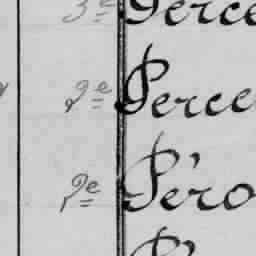 3e Perce
2e Perce
2e Péro